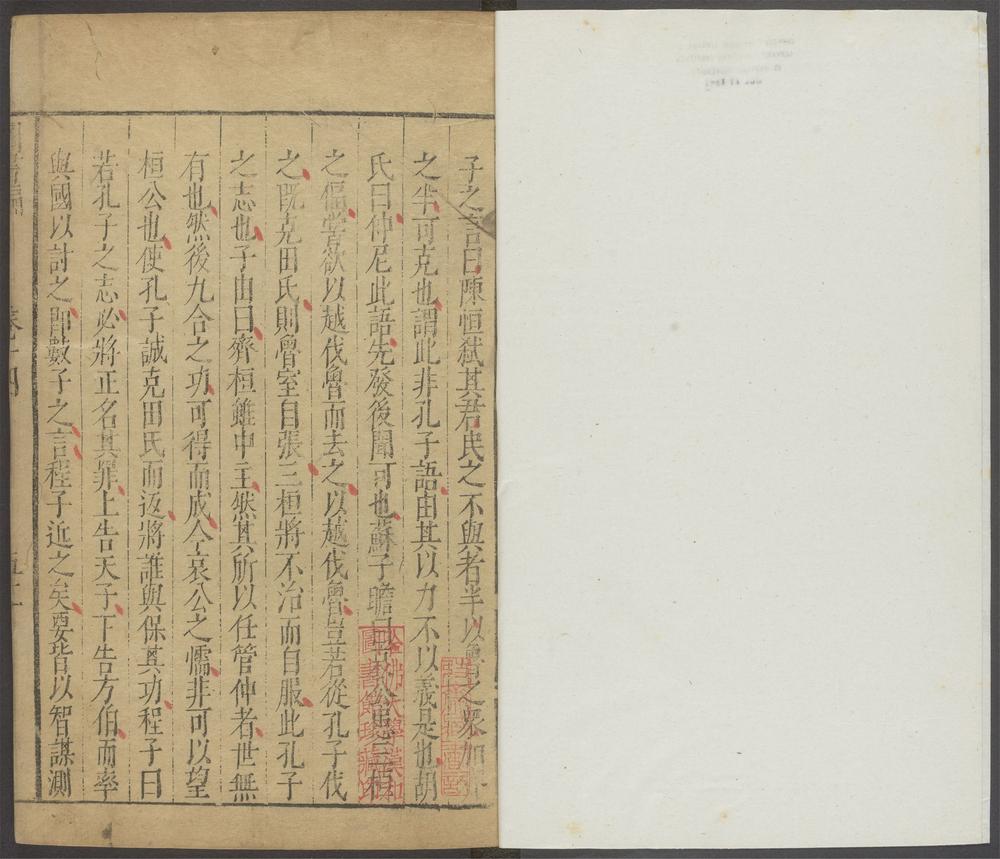 子之言曰陳恒弑其君民之不與者半以魯之衆加
之半可克也謂此非孔子語由其以力不以義是也胡
氏曰仲尼此語先發後聞可也蘇子瞻曰哀公患三桓
之偪嘗欲以越伐魯而去之以越伐魯豈若從孔子伐
之既克田氏則魯室自張三桓將不治而自服此孔子
之志也子由曰齊桓雖中主然其所以任管仲者世無
有也然後九合之功可得而成今哀公之懦非可以望
桓公也使孔子誠克田氏而返將誰與保其功程子曰
若孔子之志必將正名其罪上告天子下告方伯而率
與國以討之即數子之言程子近之矣要皆以智謀測
哈佛大學漢和
圖書館珍藏印